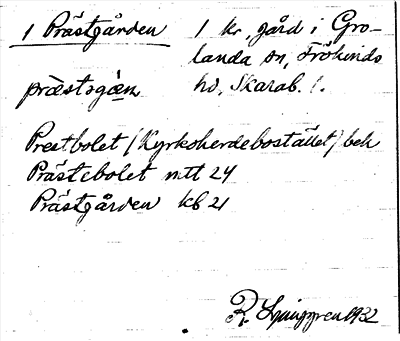 1 Prästgården 1 kr, gård i Gro-
landa sn, Frökinds
præstogɑ̀n hd, Skarab. l.
Prestbolet (Kyrkoherdebostället) beh
Prästebolet mtt 24
Prästgården kb 21
R. Ljunggren 1932